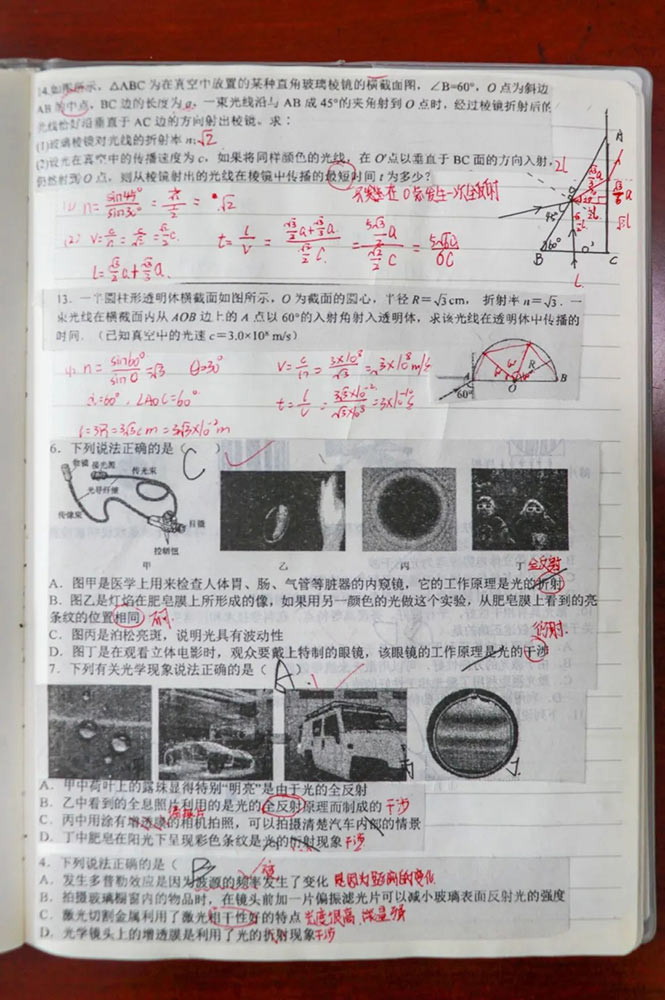 14.如图所示，△ABC 为在真空中放置的某种直角玻璃棱镜的横截面图，∠B=60°，O 点为斜边
AB 的中点，BC 边的长度为 a，一束光线沿与 AB 成 45°的夹角射到 O 点时，经过棱镜折射后的
光线恰好沿垂直于 AC 边的方向射出棱镜。求：
(1)玻璃棱镜对光线的折射率 n; √2
(2)设光在真空中的传播速度为 c，如果将同样颜色的光线，在 O′点以垂直于 BC 面的方向入射，
仍然射到 O 点，则从棱镜射出的光线在棱镜中传播的最短时间 t 为多少？
只发生在 O 点发生一次全反射
(1) n = sin45°/sin30° = = √2
(2) V = c/n = c/√2 = √2/2 c.
t = L/V =
A
O
45°
60°
B
O′
C
13．一个圆柱形透明体横截面如图所示，O 为截面的圆心，半径 R＝√3 cm， 折射率 n＝√3．一
束光线在横截面内从 AOB 边上的 A 点以 60°的入射角射入透明体，求该光线在透明体中传播的
时间．(已知真空中的光速 c＝3.0×10⁸ m/s)
n = sin60°/sinθ = √3 θ=30°
α=60°，∠AOC=60°
L=3R=3√3cm=3√3×10⁻²m
R
A
60°
O
B
6．下列说法正确的是（ C ）
物镜
传光束
光导纤维
传像束
目镜
控制钮
甲
乙
丙
丁
全反射
A．图甲是医学上用来检查人体胃、肠、气管等脏器的内窥镜，它的工作原理是光的折射
B．图乙是灯焰在肥皂膜上所形成的像，如果用另一颜色的光做这个实验，从肥皂膜上看到的亮
条纹的位置相同 不同
C．图丙是泊松亮斑，说明光具有波动性
偏振
D．图丁是在观看立体电影时，观众要戴上特制的眼镜，该眼镜的工作原理是光的干涉
7．下列有关光学现象说法正确的是（ A ）
丙
丁
A．甲中荷叶上的露珠显得特别“明亮”是由于光的全反射
B．乙中看到的全息照片利用的是光的全反射原理而制成的 干涉
偏振片
C．丙中用涂有增透膜的相机拍照，可以拍摄清楚汽车内部的情景
D．丁中肥皂在阳光下呈现彩色条纹是光的折射现象 干涉
4．下列说法正确的是（ B
A．发生多普勒效应是因为波源的频率发生了变化 是因为距离的变化
B．拍摄玻璃橱窗内的物品时，在镜头前加一片偏振滤光片可以减小玻璃表面反射光的强度
C．激光切割金属利用了激光相干性好的特点 亮度很高，能量强
D．光学镜头上的增透膜是利用了光的折射现象 干涉